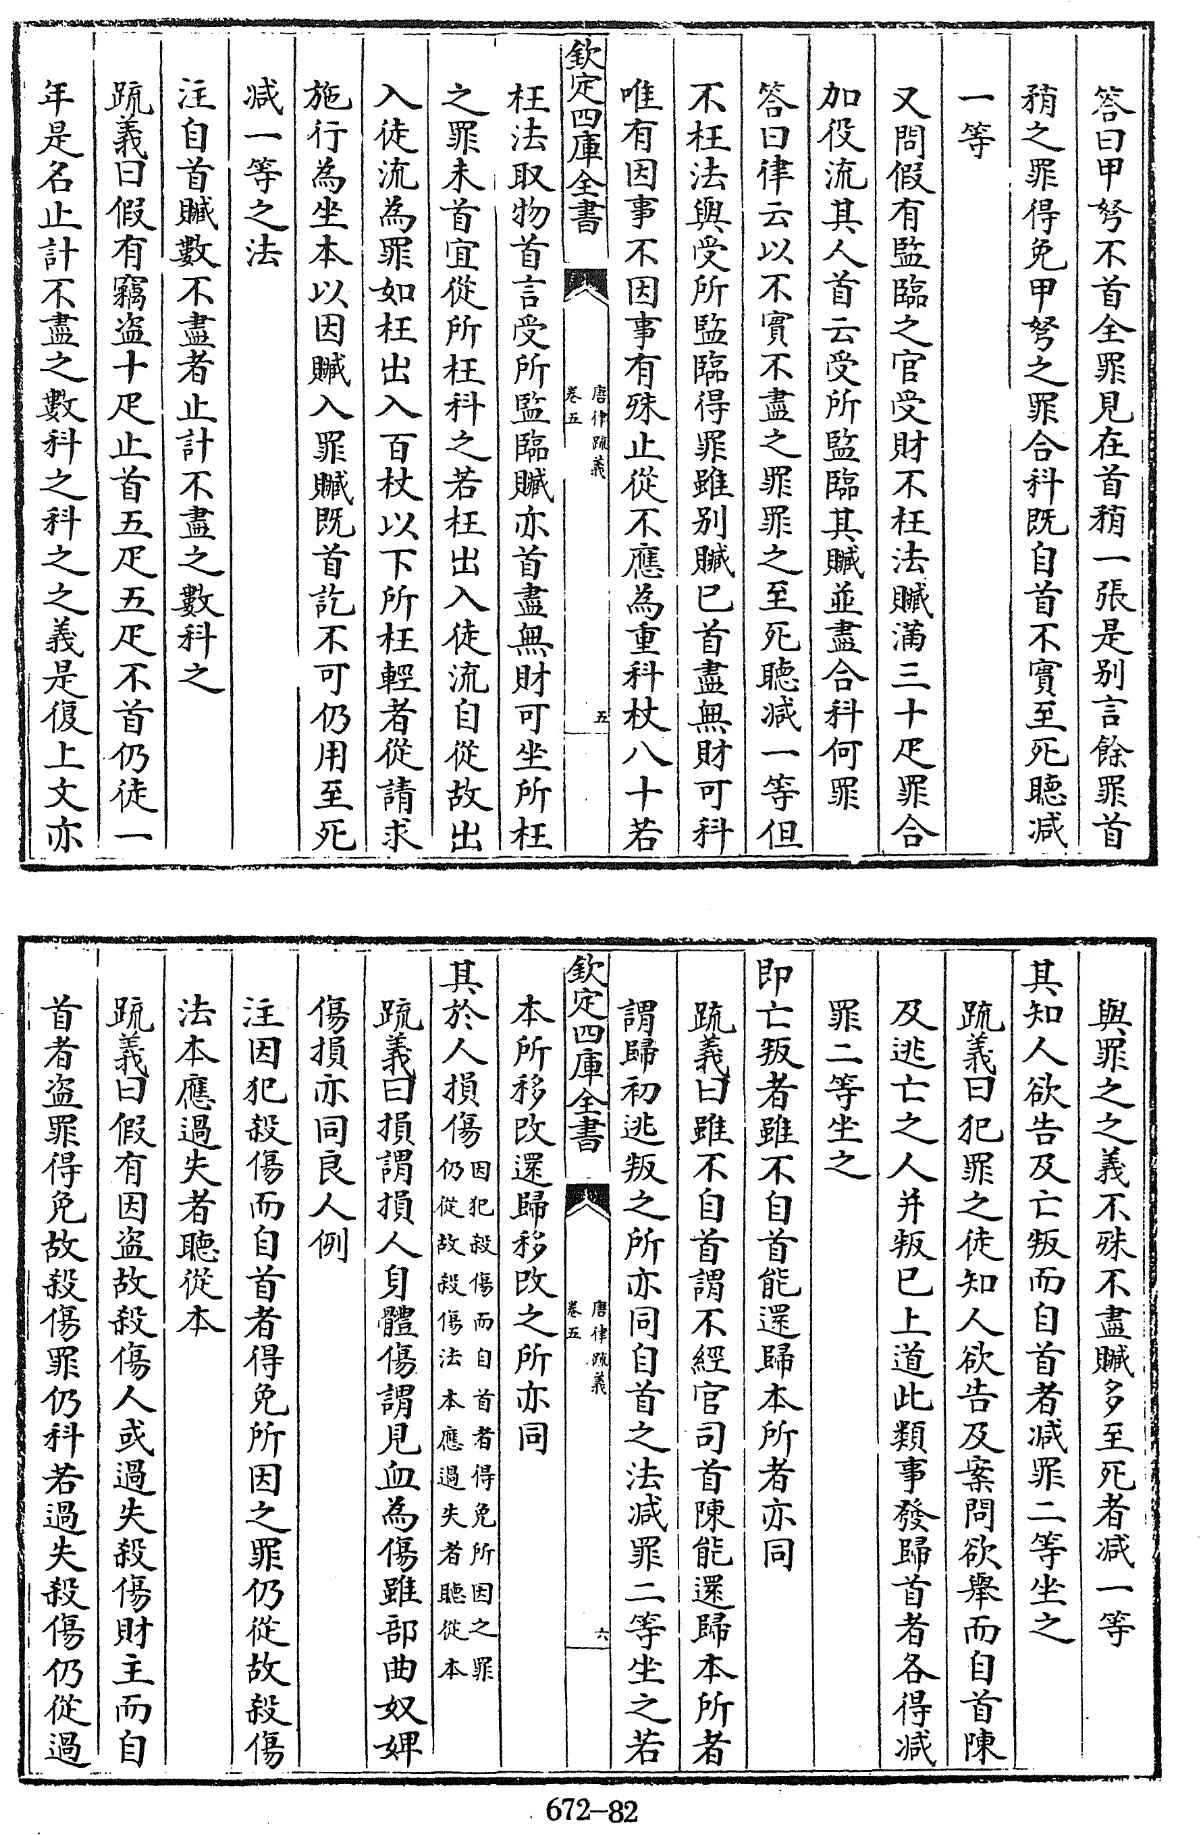 答曰甲弩不首全罪見在首矟一張是别言餘罪首
矟之罪得免甲弩之罪合科既自首不實至死聽减
一等
又問假有監臨之官受財不枉法贓滿三十疋罪合
加役流其人首云受所監臨其贓並盡合科何罪
答曰律云以不實不盡之罪罪之至死聽减一等但
不枉法與受所監臨得罪雖别贓已首盡無財可科
唯有因事不因事有殊止從不應為重科杖八十若
欽定四庫全書
唐律疏義
卷五
五
枉法取物首言受所監臨贓亦首盡無財可坐所枉
之罪未首宜從所枉科之若枉出入徒流自從故出
入徒流為罪如枉出入百杖以下所枉輕者從請求
施行為坐本以因贓入罪贓既首訖不可仍用至死
减一等之法
注自首贓數不盡者止計不盡之數科之
疏義曰假有竊盗十疋止首五疋五疋不首仍徒一
年是名止計不盡之數科之科之之義是復上文亦
與罪之之義不殊不盡贓多至死者减一等
其知人欲告及亡叛而自首者减罪二等坐之
疏義曰犯罪之徒知人欲告及案問欲舉而自首陳
及逃亡之人并叛已上道此類事發歸首者各得减
罪二等坐之
即亡叛者雖不自首能還歸本所者亦同
疏義曰雖不自首謂不經官司首陳能還歸本所者
謂歸初逃叛之所亦同自首之法减罪二等坐之若
欽定四庫全書
唐律疏義
卷五
六
本所移改還歸移改之所亦同
其於人損傷因犯殺傷而自首者得免所因之罪仍從故殺傷法本應過失者聽從本
疏義曰損謂損人身體傷謂見血為傷雖部曲奴婢
傷損亦同良人例
注因犯殺傷而自首者得免所因之罪仍從故殺傷
法本應過失者聽從本
疏義曰假有因盗故殺傷人或過失殺傷財主而自
首者盗罪得免故殺傷罪仍科若過失殺傷仍從過
672-82